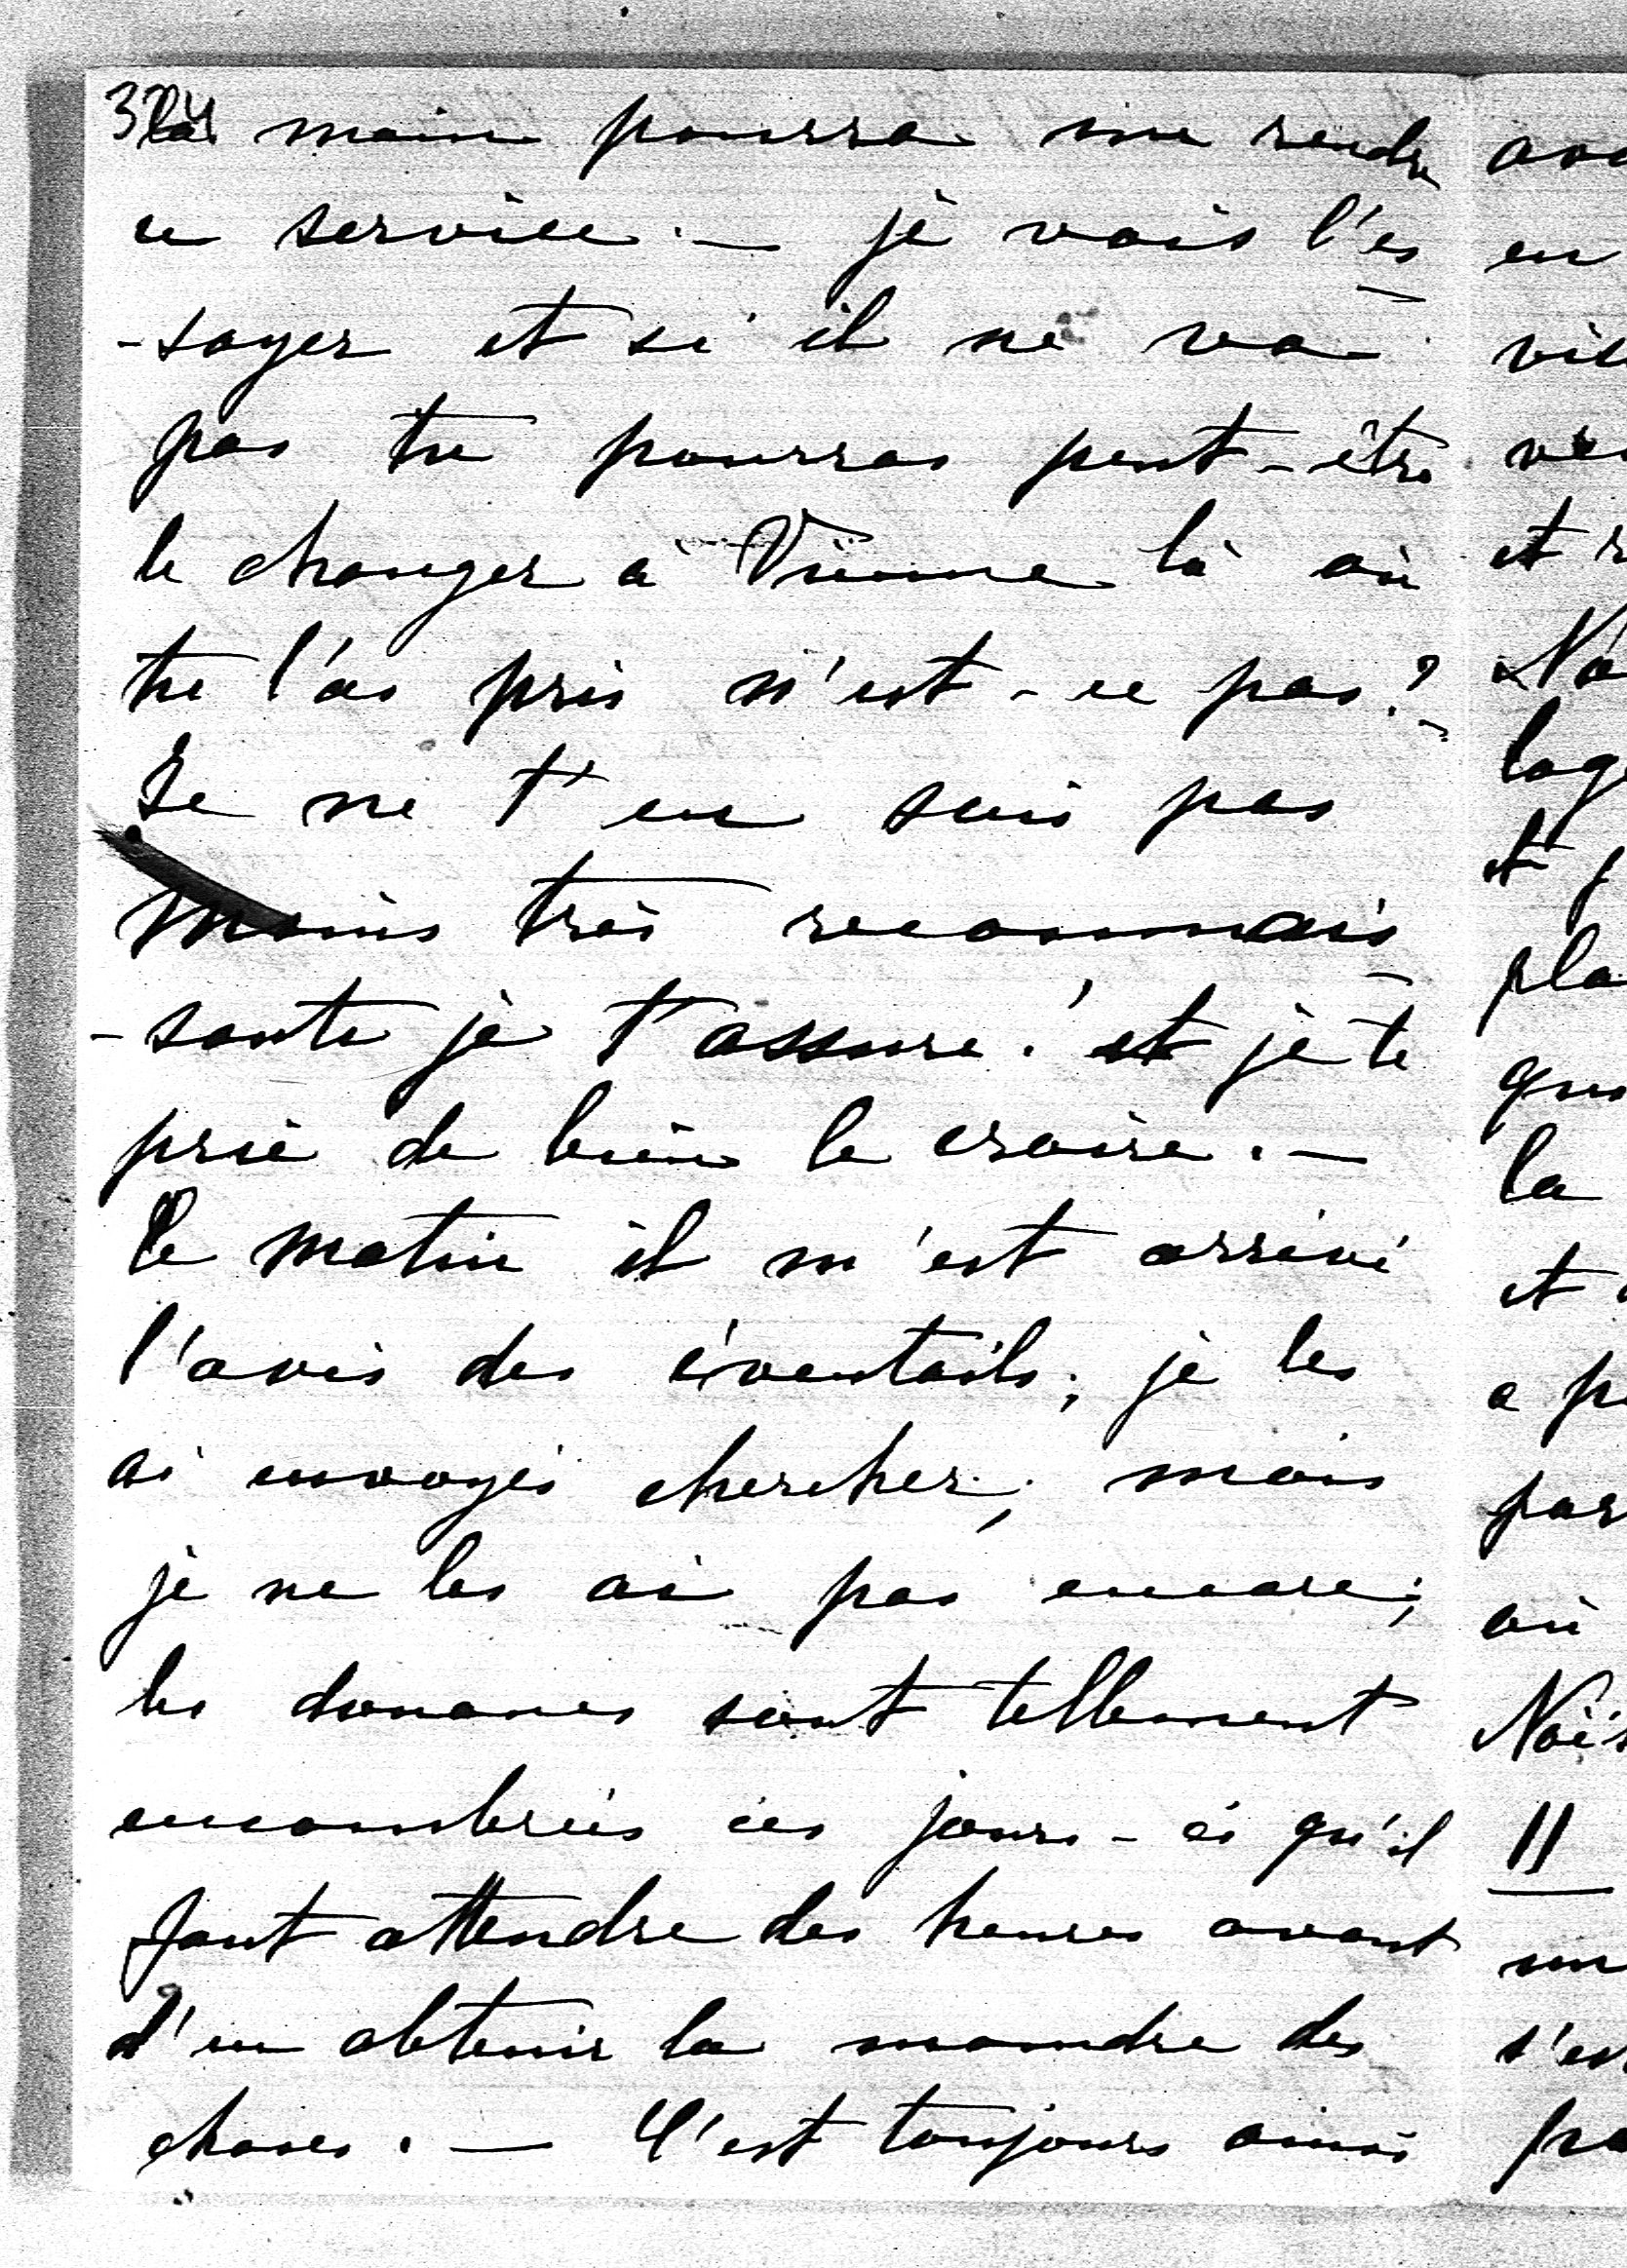 324
la main pourra me rendre
ce service. — je vais l'es
-sayer et si il ne va
pas tu pourras peut-être
le changer à Vienne là où
tu l'as pris n'est-ce pas?
Je ne t'en suis pas
moins très reconnais
-sante je t'assure. et je te
prie de bien le croire. —
Ce matin il m'est arrivé
l'avis des éventails; je les
ai envoyés chercher; mais
je ne les ai pas encore;
les douanes sont tellement
encombrées ces jours-ci qu'il
faut attendre des heures avant
d'en obtenir la moindre des
choses. — C'est toujours ainsi
en
et
la
et
où
11